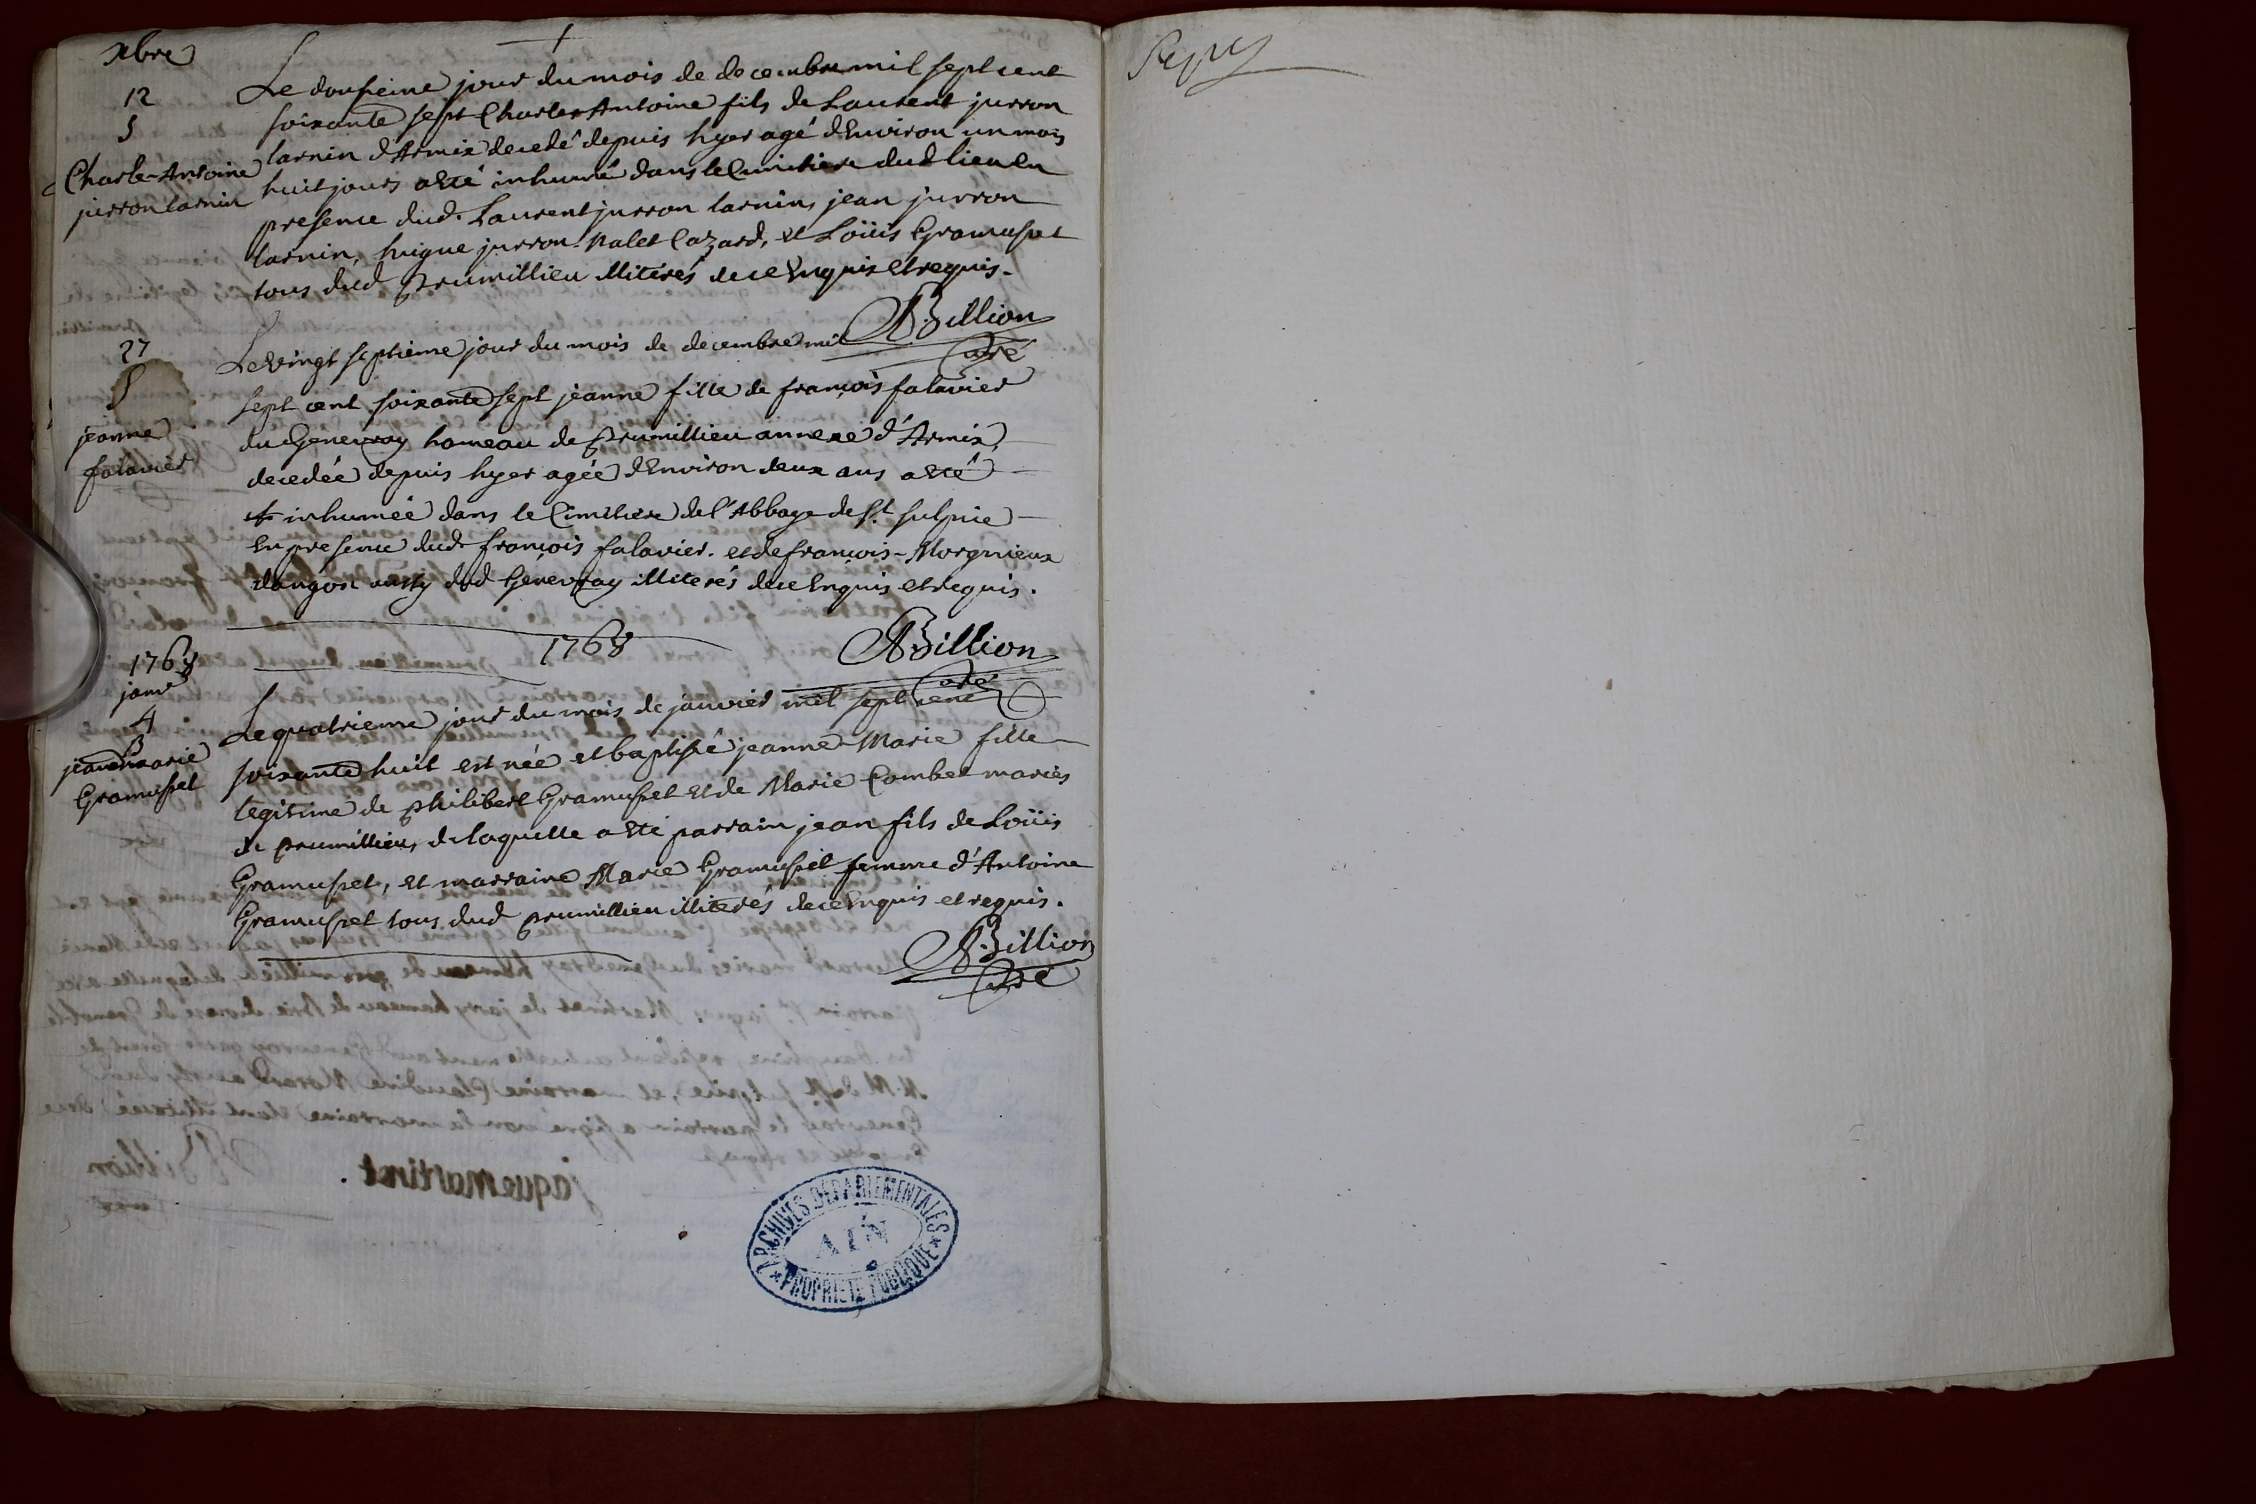 xbre
12
S
Charle-Antoine
jurron larnin
Le doussieme jour du mois de decembre mil sept cent
soixante sept Charle Antoine fils de Laurent jurron
larnin d'Armix decedé depuis hyer agé d'Environ un mois
huit jours a Eté inhumé dans le Cimitiere dud lieu En
presence dud. Laurent jurron larnin, jean jurron
larnin, hugue jurron-Nalet Cazard, et Loüis Gramusset
tous dud prumillieu illiterés de ce Enquis et requis.
ABillion
Curé
27
S
jeanne
falavier
Le vingt septieme jour du mois de decembre mil
sept cent soixante sept jeanne fille de françois falavier
du Genevray hameau de prumillieu annexe d'Armix
decedée depuis hyer agée d'Environ deux ans a Eté
inhumée dans le Cimitiere de l'Abbaye de St sulpice
En presence dud françois falavier. et de françois-Morgnieux
dangon aussy dud Genevray illiterés de ce Enquis et requis.
ABillion
Curé
1768
1768
janvr
4
B
jeanne marie
Gramusset
Le quatrieme jour du mois de janvier mil sept cent
soixante huit est née et baptisée jeanne-Marie fille
legitime de philibert Gramusset et de Marie Combet mariés
de prumillieu, de laquelle a Eté parrain jean fils de Loüis
Gramusset, et marraine Marie Gramusset femme d'Antoine
Gramusset tous dud prumillieu illiterés de ce Enquis et requis.
ABillion
Curé
ARCHIVES DEPARTEMENTALES
AIN
PROPRIETE PUBLIQUE